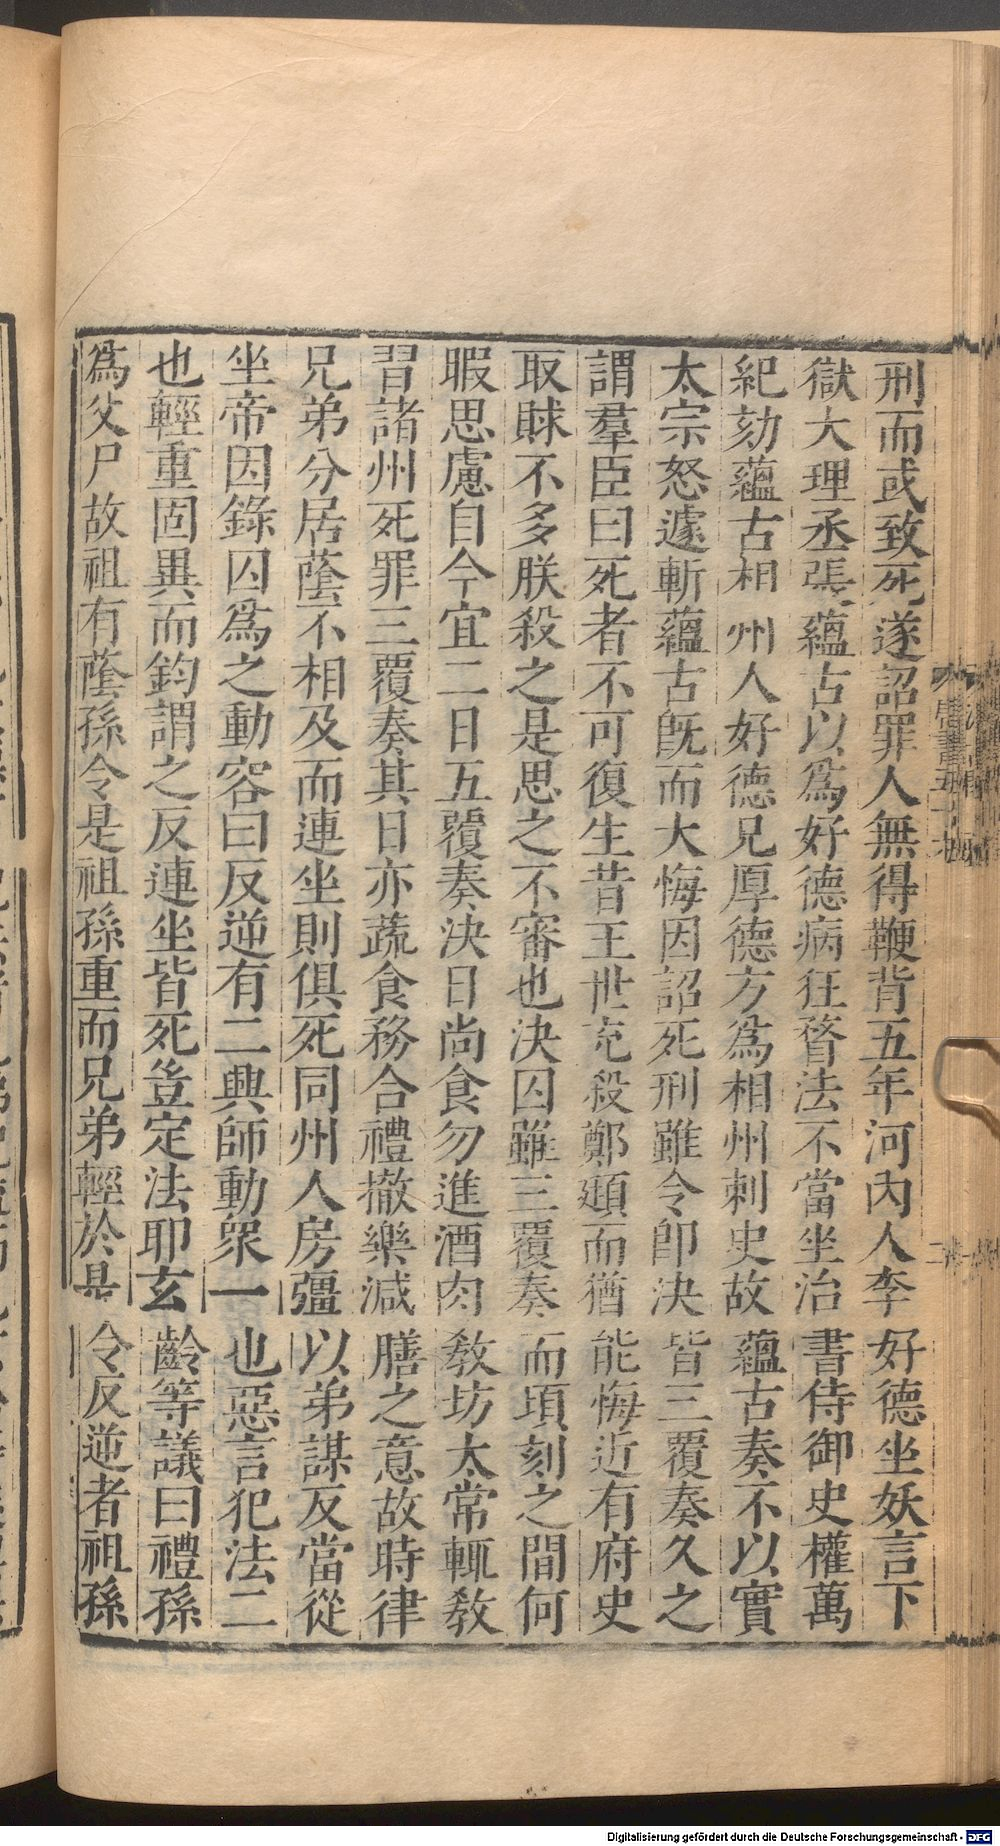 刑而或致死遂詔罪人無得鞭背五年河內人李好德坐妖言下
獄大理丞張蘊古以爲好德病狂瞀法不當坐治書侍御史權萬
紀劾蘊古相州人好德兄厚德方爲相州刺史故蘊古奏不以實
太宗怒遽斬蘊古旣而大悔因詔死刑雖令卽決皆三覆奏久之
謂羣臣曰死者不可復生昔王世充殺鄭頲而猶能悔近有府史
取賕不多朕殺之是思之不審也決囚雖三覆奏而頃刻之間何
暇思慮自今宜二日五覆奏決日尚食勿進酒肉敎坊太常輒敎
習諸州死罪三覆奏其日亦蔬食務合禮撤樂減膳之意故時律
兄弟分居蔭不相及而連坐則俱死同州人房彊以弟謀反當從
坐帝因錄囚爲之動容曰反逆有二興師動眾一也惡言犯法二
也輕重固異而鈞謂之反連坐皆死豈定法耶玄齡等議曰禮孫
爲父尸故祖有蔭孫令是祖孫重而兄弟輕於是令反逆者祖孫
Digitalisierung gefördert durch die Deutsche Forschungsgemeinschaft - DFG